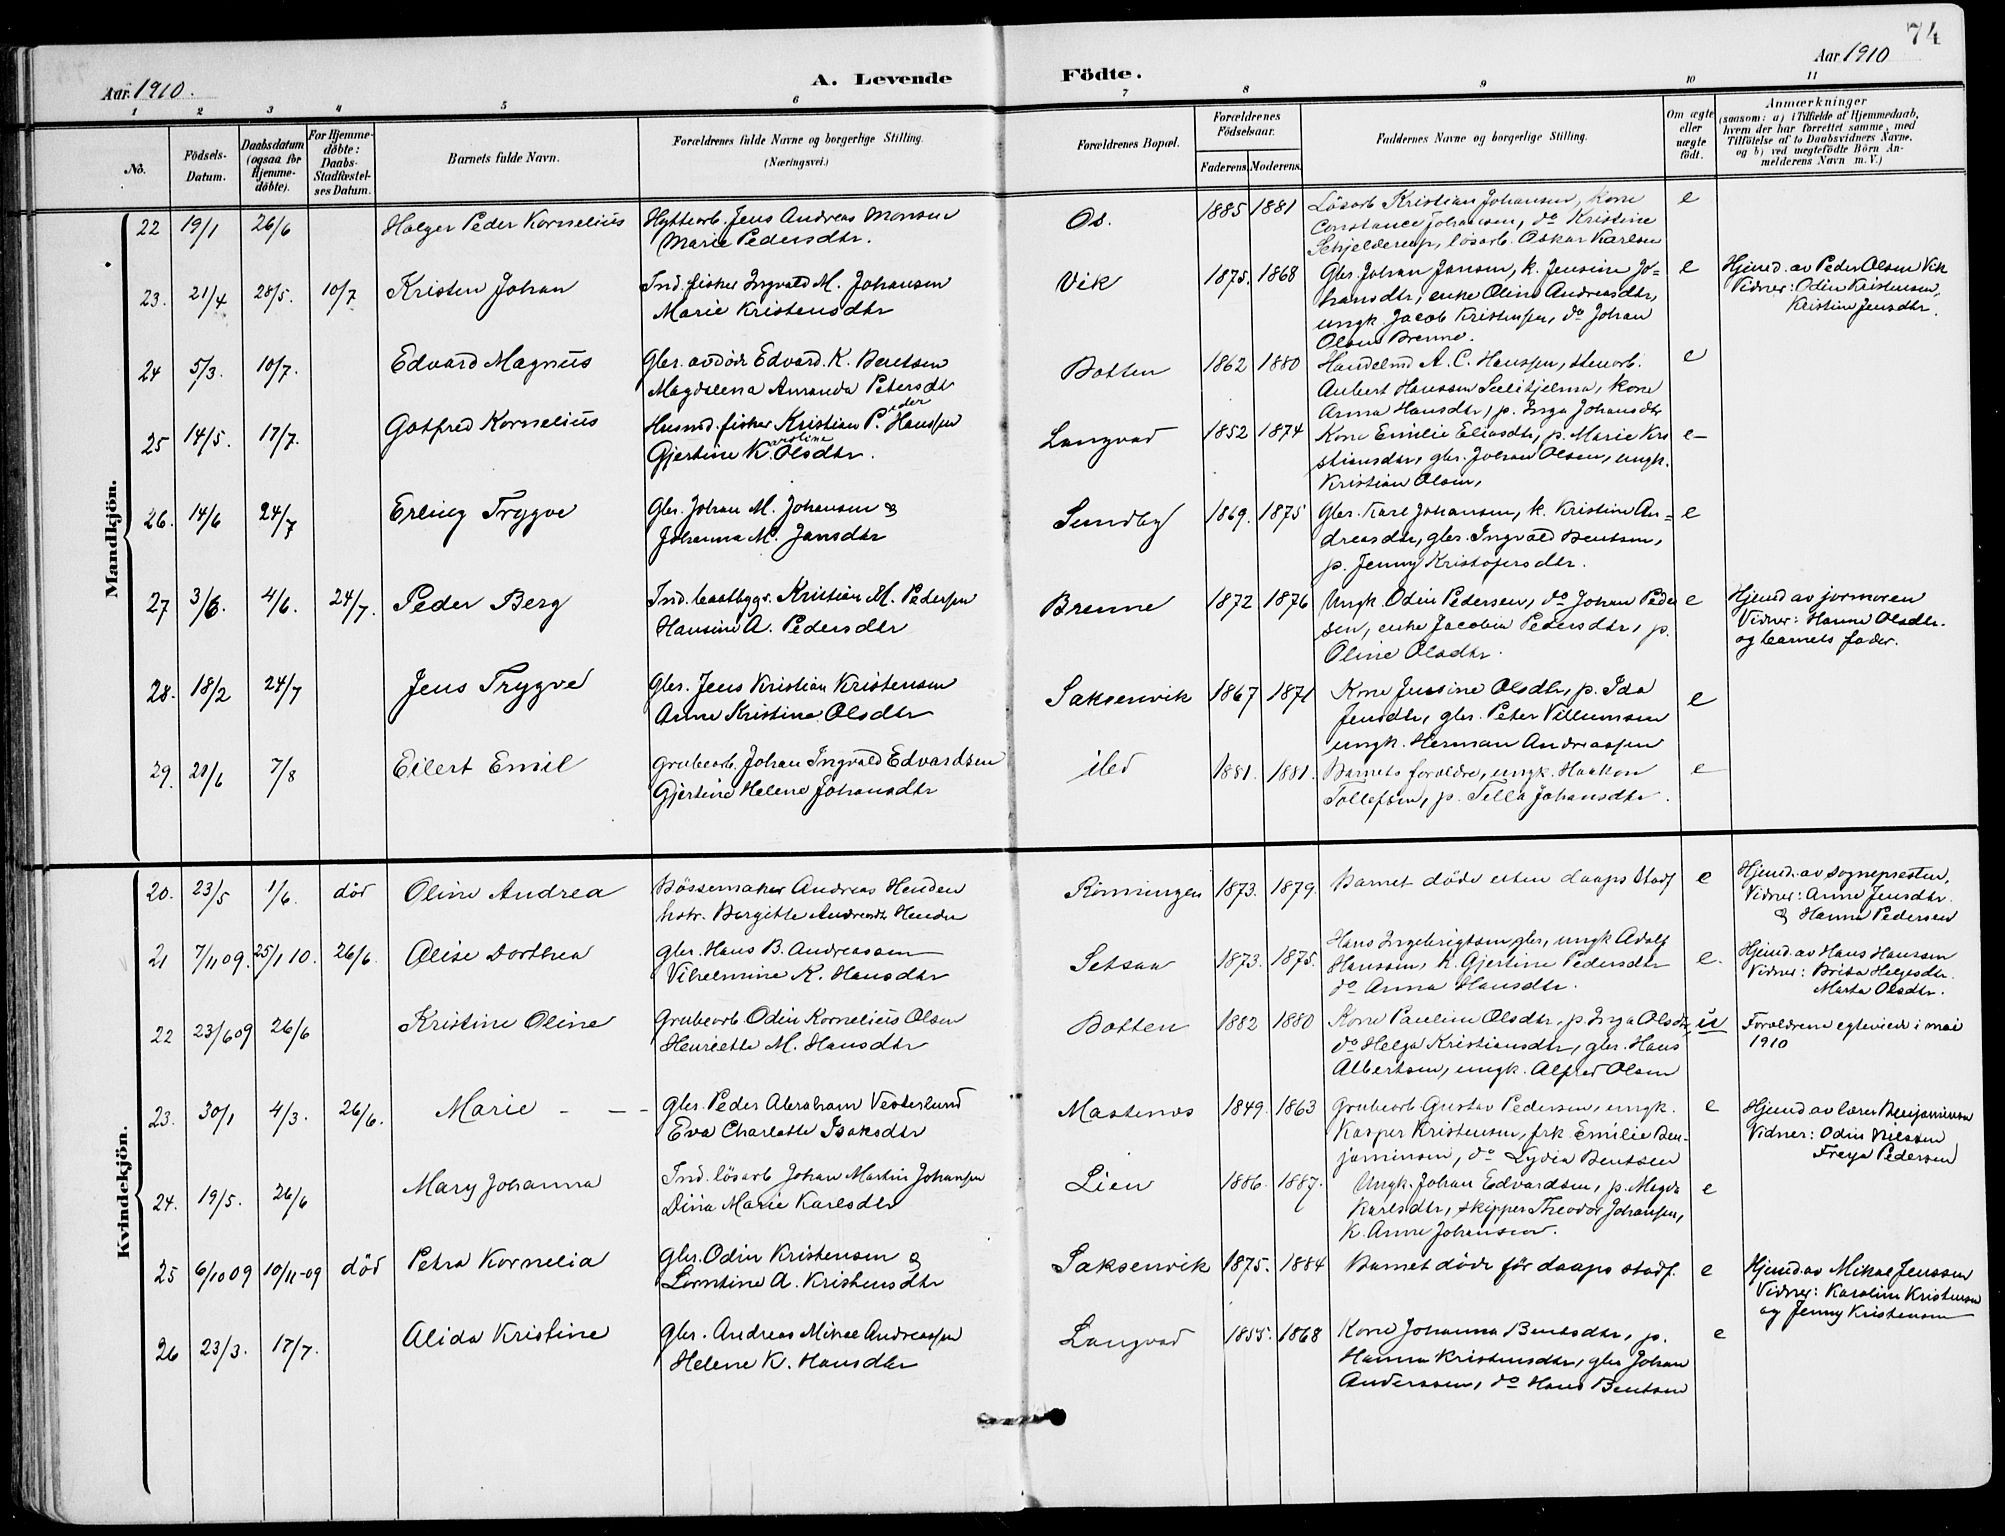 74
Aar 1910.
A. Levende
Födte.
Aar 1910
1 2 3 4 5 6 7 8 9 10 11
No.
Födsels-
Datum.
Daabsdatum
(ogsaa for
Hjemme-
döbte).
For Hjemme-
döbte:
Daabs-
Stadfæstel-
ses Datum.
Barnets fulde Navn.
Forældrenes fulde Navne og borgerlige Stilling.
(Næringsvei.)
Forældrenes Bopæl.
Forældrenes
Födselsaar.
Faderens. Moderens.
Faddernes Navne og borgerlige Stilling.
Om ægte
eller
uægte
födt.
Anmærkninger
(saasom: a) i Tilfælde af Hjemmedaab,
hvem der har forrettet samme, med
Tilföielse af to Daabsvidners Navne,
og b) ved uægtefödte Börn An-
melderens Navn m. V.)
Mandkjön.
22 19/1 26/6 Holger Peder Kornelius
Hytteorb. Jens Andreas Monsen
Marie Pedersdtr.
Os. 1885 1881
Lösarb Kristian Johansen, kone
Constance Johansen, do Kristine
Schjelderup, lösarb. Oskar Karlsen
e
23. 21/4 28/5. 10/7 Kristen Johan
Ind. fisker Ingvald M. Johansen
Marie Kristensdtr
Vik 1875. 1868
Gbr. Johan Jansen, k. Jensine Jo-
hansdtr, enke Oline Andreasdtr,
ungk. Jacob Kristensen, do Johan
Olsen Brenne.
e
Hjemd. av Peder Olsen Vik
Vidner: Odin Kristensen,
Kristine Jensdtr.
24 5/3. 10/7. Edvard Magnus
Gbr. avdöde Edvard K. Bentsen
Magdalena Amanda Petersdtr
Botten 1862 1880
Handelsmd A. C. Hanssen, stenorb.
Aubert Hanssen Sulitjelma, kone
Anna Hansdtr, p. Inga Johansdtr
e
25 14/5. 17/7. Gotfred Kornelius
Husmd. fisker Kristian Peder Hanssen
Gjertine Karoline Olsdtr.
Langvad 1852 1874
Kone Emilie Eliasdtr, p. Marie Kri
stiansdtr, gbr. Johan Olsen, ungk.
Kristian Olsen,
e
26. 14/6 24/7 Erling Trygve
Gbr. Johan M. Johansen &
Johanna M. Jansdtr
Sundby 1869. 1875
Gbr. Karl Johansen, k. Kristine An-
dreasdtr, gbr. Ingvald Bentsen,
p. Jenny Kristofersdtr.
e
27 3/6. 4/6. 24/7. Peder Berg
Ind. baatbygr. Kristian M. Pedersen
Hansine A. Pedersdtr
Brenne 1872 1876
Ungk. Odin Pedersen, do Johan Peder
sen, enke Jacobia Pedersdtr, p.
Oline Olsdtr.
e
Hjemd av jormoren
Vidner: Hanne Olsdtr.
og barnets fader.
28. 18/2 24/7 Jens Trygve
Gbr. Jens Kristian Kristensen
Anne Kristine Olsdtr
Saksenvik 1867 1871
Kone Jensine Olsdtr, p. Ida
Jensdtr, gbr. Peter Villumsen
ungk. Herman Andreassen
e
29. 20/6 7/8 Eilert Emil
Grubeorb. Johan Ingvald Edvardsen
Gjertine Helene Johansdtr
iled 1881. 1881.
Barnets forældre, ungk. Haakon
Tollefsen, p. Tella Johansdtr.
e
Kvindekjön.
20. 23/5 1/6. död Oline Andrea
Bössemaker Andreas Henden
hstr. Bergitte Andreasdtr Henden
Rönningen 1873. 1879.
Barnet döde uten daaps Stadf
e
Hjemd. av sognepresten,
Vidner: Anne Jensdtr.
& Hanna Pedersen
21 7/11 09. 25/1 10. 26/6. Alise Dorthea
Gbr. Hans B. Andreassen
Vilhelmine K. Hansdtr
Setsaa 1873. 1875.
Hans Ingebrigtsen gbr, ungk Adolf
Hanssen, k. Gjertine Pedersdtr
do Anna Hansdtr.
e.
Hjemd av Hans Hanssen
Vidner: Brita Helgesdtr.
Marta Olsdtr.
22 23/6 09 26/6 Kristine Oline
Grubeorb. Odin Kornelius Olsen
Henriette M. Hansdtr
Botten 1882 1880
Kone Pauline Olsdtr, p. Inga Olsdtr,
do Helga Kristiansdtr, gbr. Hans
Albertsen, ungk. Alfred Olsen
u
Forældrene egteviede i mai
1910
23. 30/1 4/3. 26/6. Marie - - -
Gbr. Peder Abraham Vesterlund
Eva Charlotte Isaksdtr
Mastenos 1849. 1863
Grubeorb Gustav Pedersen, ungk.
Kasper Kristensen, frk. Emilie Ben-
jaminsen, do Lydia Bentsen
e
Hjemd av lærer Benjaminsen
Vidner: Odin Nilssen
Freya Pedersen
24. 19/5. 26/6 Mary Johanna
Ind. lösarb Johan Martin Johansen
Dina Marie Karlsdtr
Lien 1886. 1887.
Ungk. Johan Edvardsen, p. Magda
Karlsdtr, skipper Theodor Johansen,
k. Anne Johansen.
e
25 6/10 09 10/11-09 död Petra Kornelia
Gbr. Odin Kristensen &
Lorntine A. Kristensdtr
Saksenvik 1875. 1884
Barnet döde för daaps stadf.
e
Hjemd av Mikal Jenssen
Vidner: Karoline Kristensen
og Jenny Kristensen
26 23/3. 17/7. Alida Kristine
Gbr. Andreas Mikal Andreassen
Helene K. Hansdtr
Langvad 1855. 1868
Kone Johanna Bentsdtr, p.
Hanna Kristensdtr, gbr Johan
Anderssen, do Hans Bentsen
e